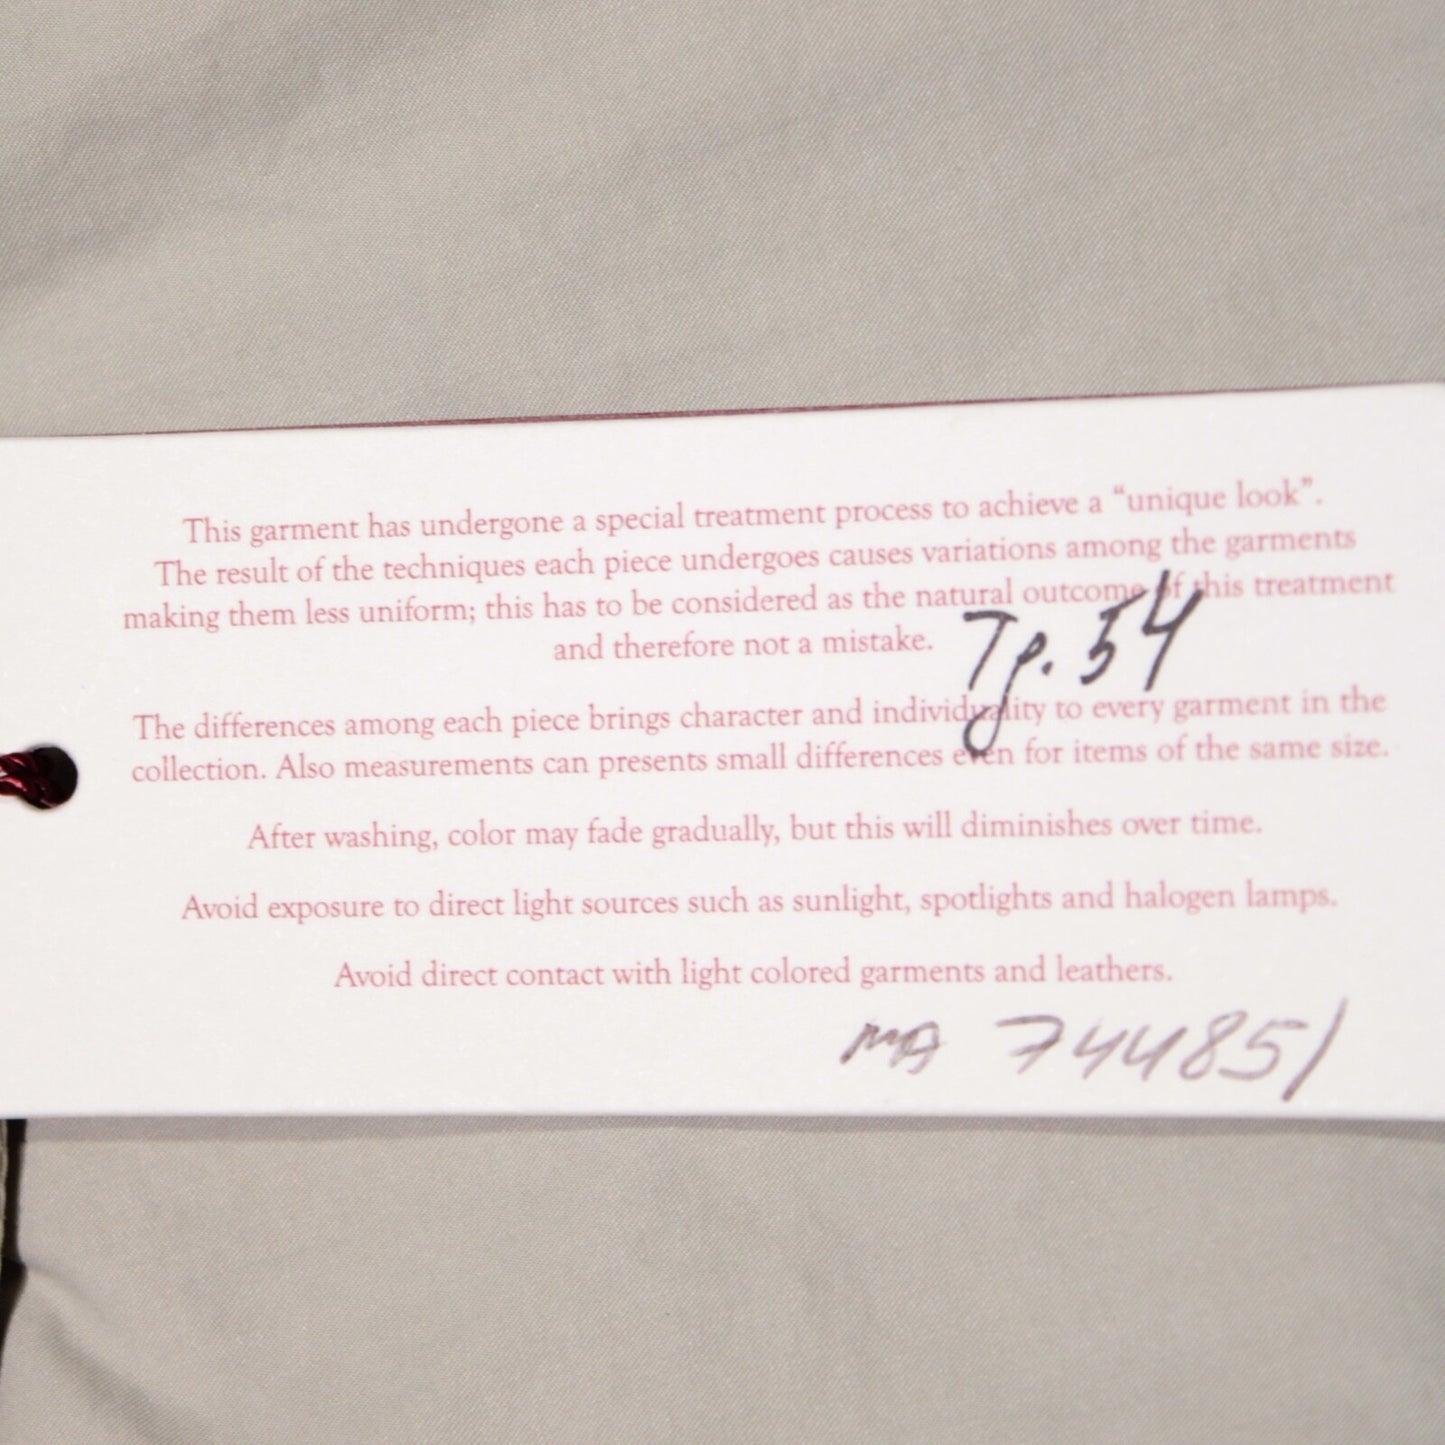 This garment has undergone a special treatment process to achieve a “unique look”.
The result of the techniques each piece undergoes causes variations among the garments
making them less uniform; this has to be considered as the natural outcome of this treatment
and therefore not a mistake.
Tg. 54
The differences among each piece brings character and individuality to every garment in the
collection. Also measurements can presents small differences even for items of the same size.
After washing, color may fade gradually, but this will diminishes over time.
Avoid exposure to direct light sources such as sunlight, spotlights and halogen lamps.
Avoid direct contact with light colored garments and leathers.
MA 744851